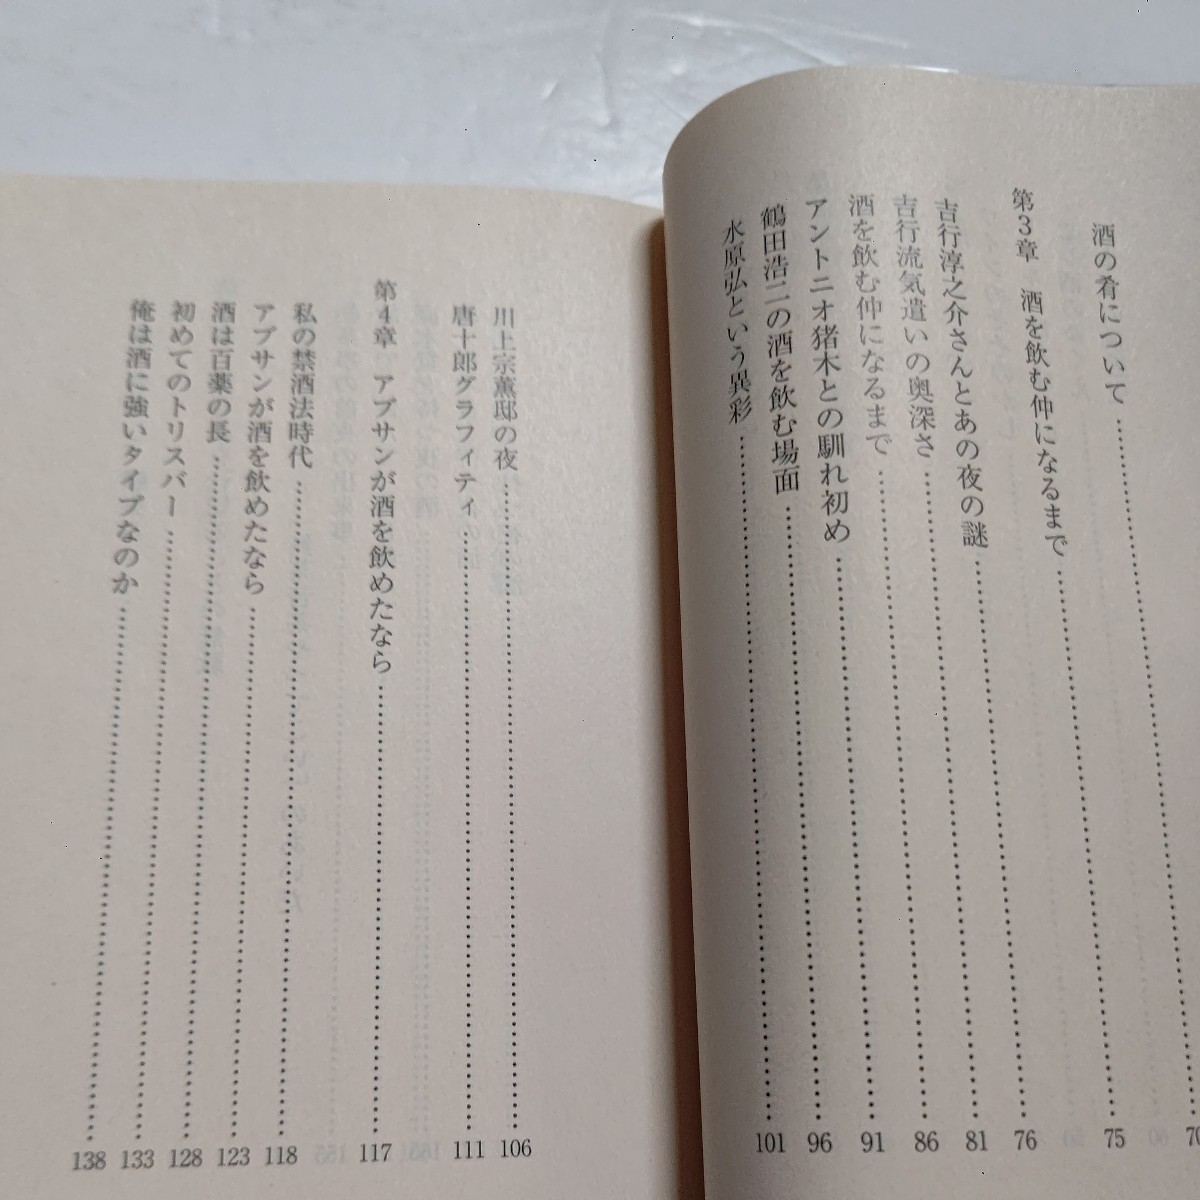 酒の肴について…………70
第3章　酒を飲む仲になるまで…………75
吉行淳之介さんとあの夜の謎…………76
吉行流気遣いの奥深さ…………81
酒を飲む仲になるまで…………86
アントニオ猪木との馴れ初め…………91
鶴田浩二の酒を飲む場面…………96
水原弘という異彩…………101
川上宗薫邸の夜…………106
唐十郎グラフィティ…………111
第4章　アブサンが酒を飲めたなら…………117
私の禁酒法時代…………118
アブサンが酒を飲めたなら…………123
酒は百薬の長…………128
初めてのトリスバー…………133
俺は酒に強いタイプなのか…………138